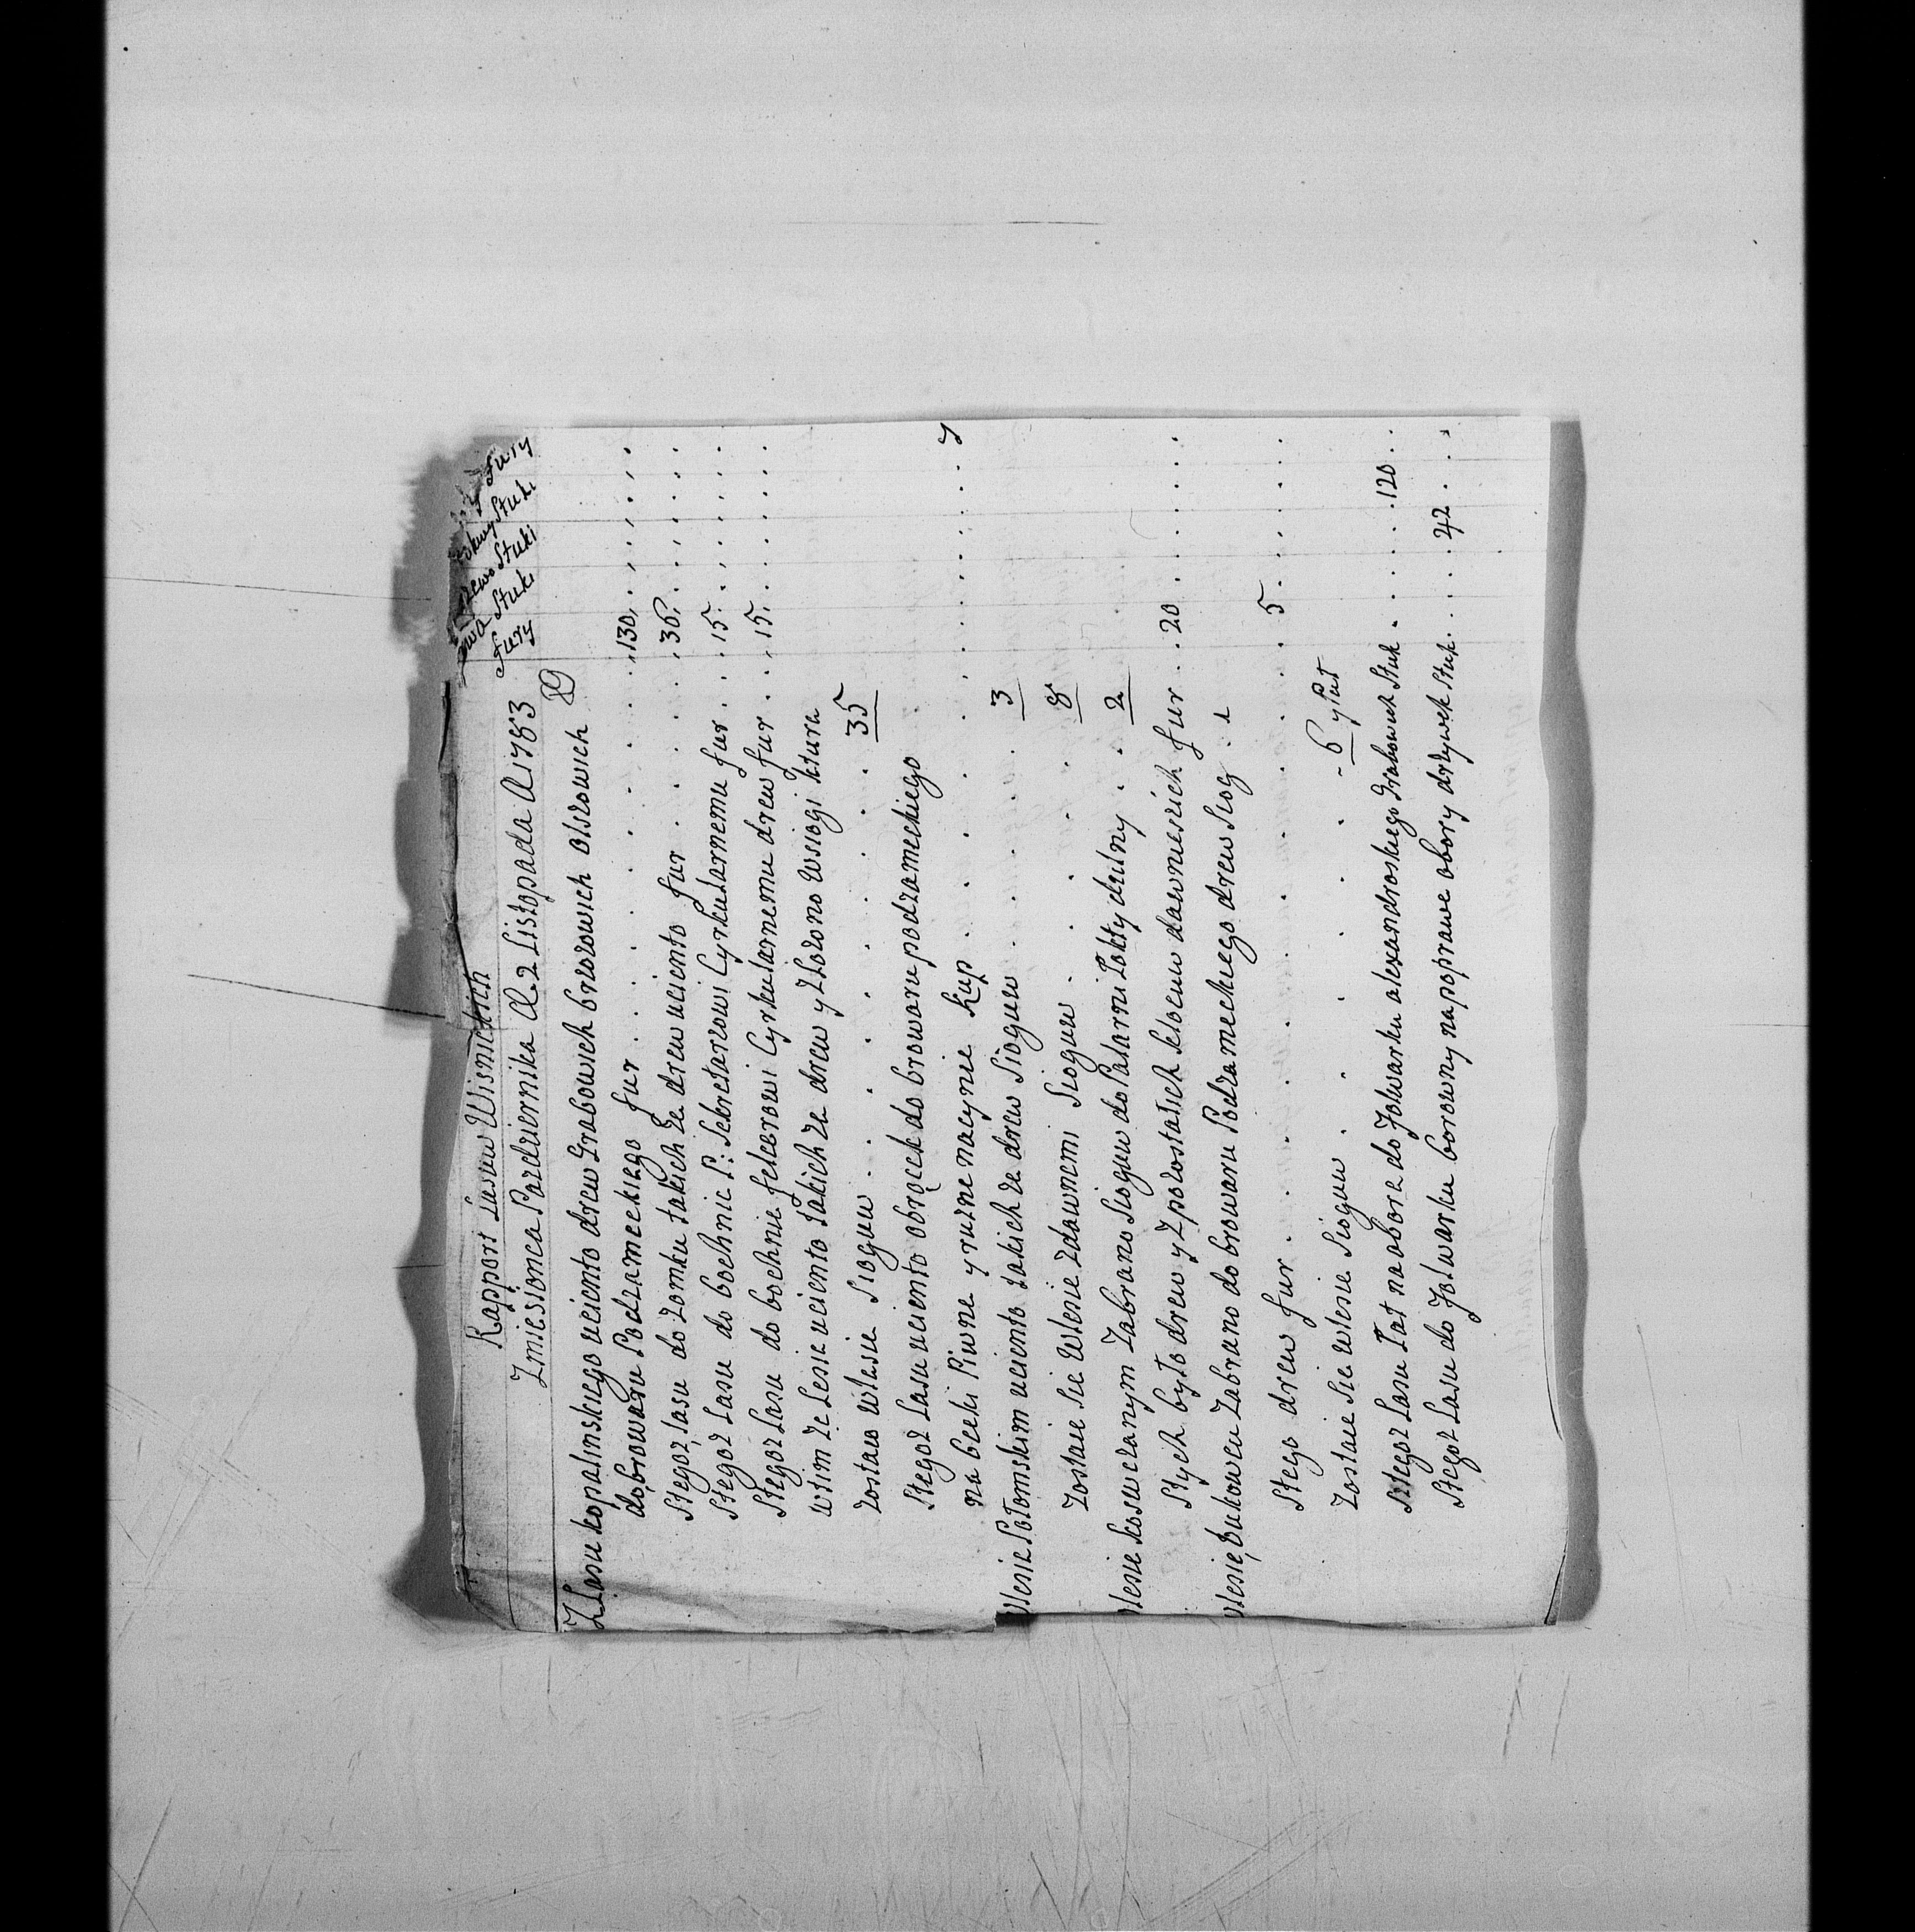 Rapport Lasuw Wisnickich
Zmiesionca Pazdziernika d. 2 Listopada A 1783
Fury
Stuki
Stuki
Stuki
Fury
Zlasu kopalinskiego uciento drew Grabowich brzozowich olszowich
do browaru Podzameckiego fur 130
Stegoz lasu do zomku takich ze drew uciento fur 36
Stegoz Lasu do bochnie P: Sekretarzowi Cyrkularnemu fur 15
Stegoz Lasu do bochnie felcerowi Cyrkularnemu drew fur 15
wtim ze Lesie uciento takich ze drew y zlozono wsiogi ktura
zostaw wlesie Sioguw 35
Stegoz Lasu uciento obrącek do browaru podzameckiego
na becki Piwne y ruzne nacynie kup 7
Wlesie Połomskim uciento takich ze drew Sioguw 3
Zostaie Sie Wlesie zdawnemi Sioguw 8
Wlesie koswczanym Zabrano Sioguw do Palarni 2
Stych było drew y zpozostałich klocuw dawnieszich fur 20
Wlesie bukowcu Zabrano do browaru Podzameckiego drew Siog 1
Stego drew fur 5
Zostaie Sie wlesie Sioguw 6 y Puł
Stegoz Lasu Łat na obore do Folwarku alexandroskiego Grabowich Stuk 120
Stegoz Lasu do Folwarku borowny na poprawe obory drzywek Stuk 42